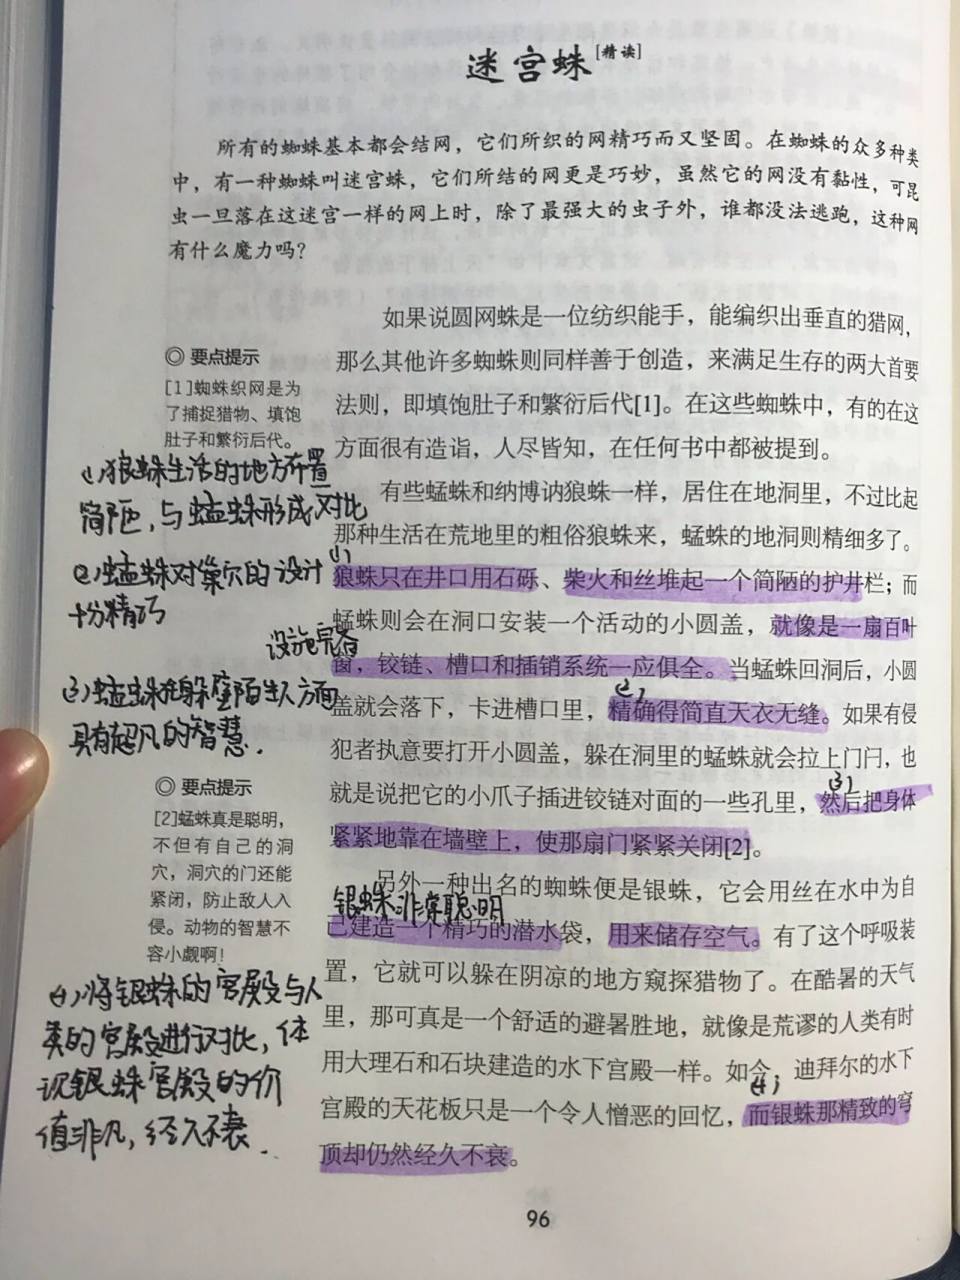 迷宫蛛[精读]
所有的蜘蛛基本都会结网，它们所织的网精巧而又坚固。在蜘蛛的众多种类
中，有一种蜘蛛叫迷宫蛛，它们所结的网更是巧妙，虽然它的网没有黏性，可昆
虫一旦落在这迷宫一样的网上时，除了最强大的虫子外，谁都没法逃跑，这种网
有什么魔力吗？
如果说圆网蛛是一位纺织能手，能编织出垂直的猎网，
那么其他许多蜘蛛则同样善于创造，来满足生存的两大首要
法则，即填饱肚子和繁衍后代[1]。在这些蜘蛛中，有的在这
方面很有造诣，人尽皆知，在任何书中都被提到。
◎ 要点提示
[1]蜘蛛织网是为
了捕捉猎物、填饱
肚子和繁衍后代。
(1)狼蛛生活的地方布置
简陋，与蜢蛛形成对比
(2)蜢蛛对巢穴的设计
十分精巧
设施完备
(3)蜢蛛在躲避陌生人方面
具有超凡的智慧.
有些蜢蛛和纳博讷狼蛛一样，居住在地洞里，不过比起
那种生活在荒地里的粗俗狼蛛来，蜢蛛的地洞则精细多了。
(1)
狼蛛只在井口用石砾、柴火和丝堆起一个简陋的护井栏；而
蜢蛛则会在洞口安装一个活动的小圆盖，就像是一扇百叶
窗，铰链、槽口和插销系统一应俱全。当蜢蛛回洞后，小圆
(2)
盖就会落下，卡进槽口里，精确得简直天衣无缝。如果有侵
犯者执意要打开小圆盖，躲在洞里的蜢蛛就会拉上门闩，也
(3)
就是说把它的小爪子插进铰链对面的一些孔里，然后把身体
紧紧地靠在墙壁上，使那扇门紧紧关闭[2]。
◎ 要点提示
[2]蜢蛛真是聪明，
不但有自己的洞
穴，洞穴的门还能
紧闭，防止敌人入
侵。动物的智慧不
容小觑啊！
另外一种出名的蜘蛛便是银蛛，它会用丝在水中为自
银蛛非常聪明
己建造一个精巧的潜水袋，用来储存空气。有了这个呼吸装
置，它就可以躲在阴凉的地方窥探猎物了。在酷暑的天气
里，那可真是一个舒适的避暑胜地，就像是荒谬的人类有时
用大理石和石块建造的水下宫殿一样。如今，迪拜尔的水下
(4)
宫殿的天花板只是一个令人憎恶的回忆，而银蛛那精致的穹
顶却仍然经久不衰。
(4)将银蛛的宫殿与人
类的宫殿进行对比，体
现银蛛宫殿的价
值非凡，经久不衰.
96